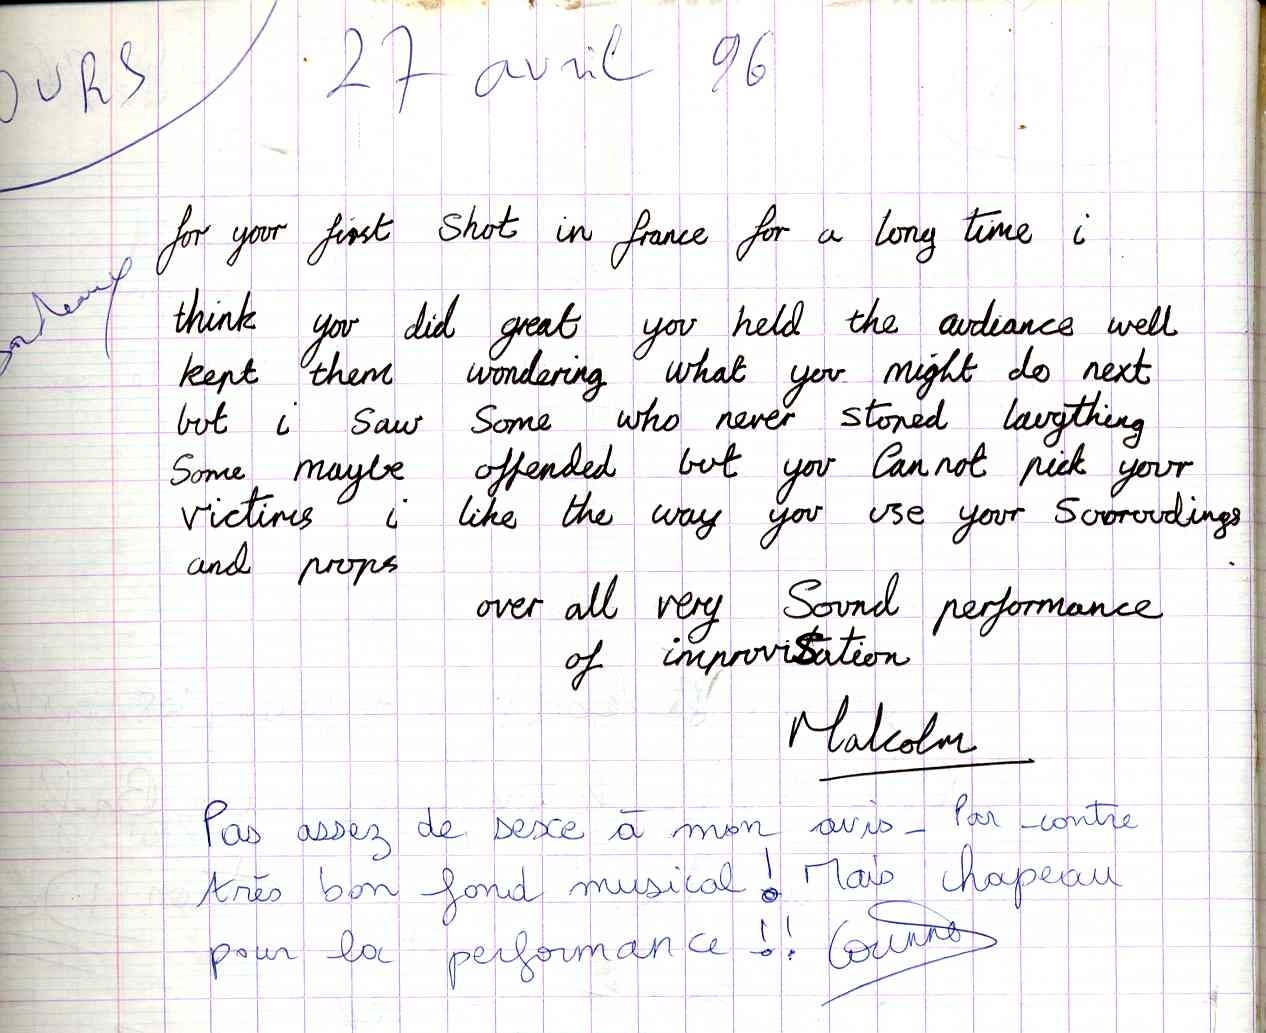 OURS
27 avril 96
for your first shot in france for a long time i
think you did great you held the audiance well
kept them wondering what you might do next
but i saw some who never stoped laugthing
Some maybe offended but you cannot pick your
victims i like the way you use your Sooroudings
and props
over all very Sound performance
of improvisation
Malcolm
Pas assez de sexe à mon avis - Par - contre
très bon fond musical ! Mais chapeau
pour la performance !!